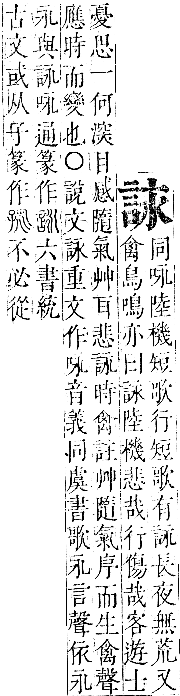 詠
同咏陸機短歌行短歌有詠長夜無荒又
禽鳥鳴亦曰詠陸機悲哉行傷哉客遊士
憂思一何深目感隨氣艸耳悲詠時禽註艸隨氣序而生禽聲
應時而變也〇說文詠重文作咏音義同虞書歌永言聲依永
永與詠咏通篆作六書統
古文或从篆作不必從